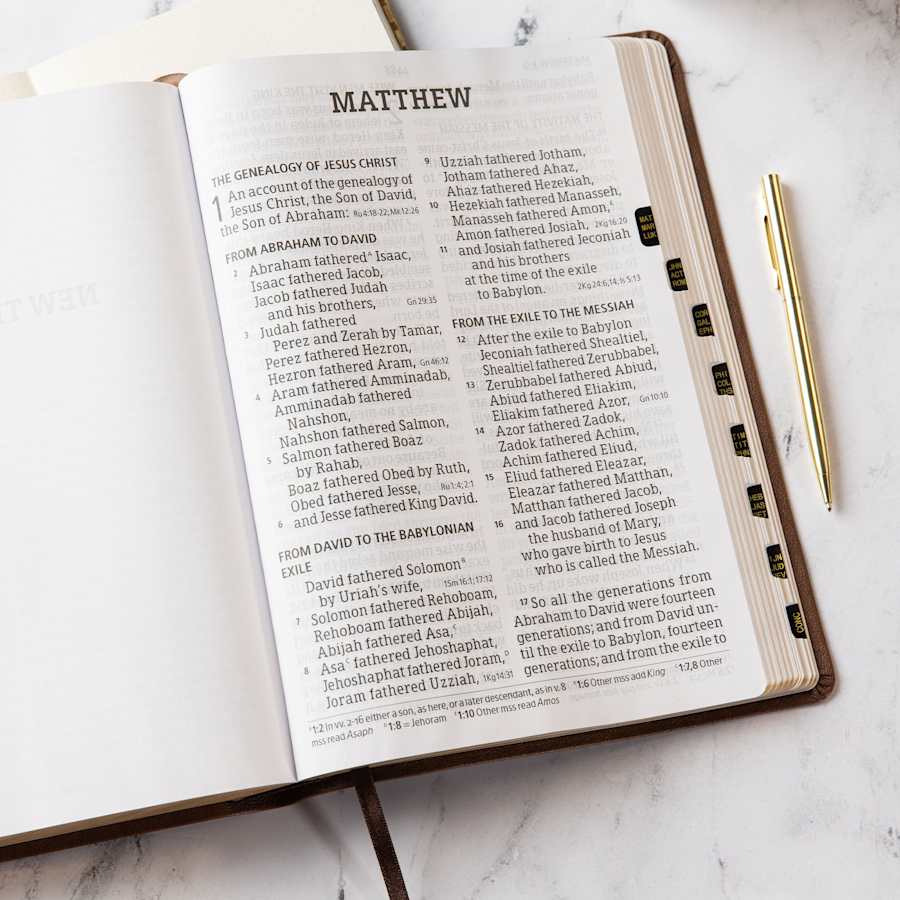 MATTHEW
THE GENEALOGY OF JESUS CHRIST
1 An account of the genealogy of
Jesus Christ, the Son of David,
the Son of Abraham: Ru 4:18-22; Mk 12:26
FROM ABRAHAM TO DAVID
2 Abraham fathered^A Isaac,
Isaac fathered Jacob,
Jacob fathered Judah
and his brothers, Gn 29:35
3 Judah fathered
Perez and Zerah by Tamar,
Perez fathered Hezron,
Hezron fathered Aram, Gn 46:12
4 Aram fathered Amminadab,
Amminadab fathered
Nahshon,
Nahshon fathered Salmon,
5 Salmon fathered Boaz
by Rahab,
Boaz fathered Obed by Ruth,
Obed fathered Jesse, Ru 4:1; 2:1
6 and Jesse fathered King David.
FROM DAVID TO THE BABYLONIAN
EXILE
David fathered Solomon^B
by Uriah's wife, 1Sm 16:1; 17:12
7 Solomon fathered Rehoboam,
Rehoboam fathered Abijah,
Abijah fathered Asa,^C
8 Asa^C fathered Jehoshaphat,
Jehoshaphat fathered Joram,^D
Joram fathered Uzziah, 1Kg 14:31
9 Uzziah fathered Jotham,
Jotham fathered Ahaz,
Ahaz fathered Hezekiah,
10 Hezekiah fathered Manasseh,
Manasseh fathered Amon,^E
Amon fathered Josiah, 2Kg 16:20
11 and Josiah fathered Jeconiah
and his brothers
at the time of the exile
to Babylon. 2Kg 24:6,14; Is 5:13
FROM THE EXILE TO THE MESSIAH
12 After the exile to Babylon
Jeconiah fathered Shealtiel,
Shealtiel fathered Zerubbabel,
13 Zerubbabel fathered Abiud,
Abiud fathered Eliakim,
Eliakim fathered Azor, Gn 10:10
14 Azor fathered Zadok,
Zadok fathered Achim,
Achim fathered Eliud,
15 Eliud fathered Eleazar,
Eleazar fathered Matthan,
Matthan fathered Jacob,
16 and Jacob fathered Joseph
the husband of Mary,
who gave birth to Jesus
who is called the Messiah.
17 So all the generations from
Abraham to David were fourteen
generations; and from David un-
til the exile to Babylon, fourteen
generations; and from the exile to
^A1:2 In vv. 2-16 either a son, as here, or a later descendant, as in v. 8 ^B1:6 Other mss add King ^C1:7,8 Other
mss read Asaph ^D1:8 = Jehoram ^E1:10 Other mss read Amos
MAT
MAR
LUK
JHN
ACT
ROM
COR
GAL
EPH
PHI
COL
THS
TIM
TIT
PHN
HEB
JAS
PET
JN
JUD
REV
CONC